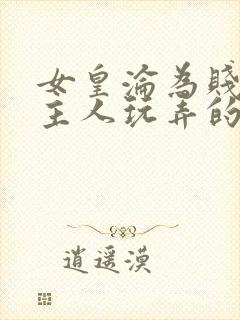 女皇淪為賤
主人玩弄的
逍遥漠